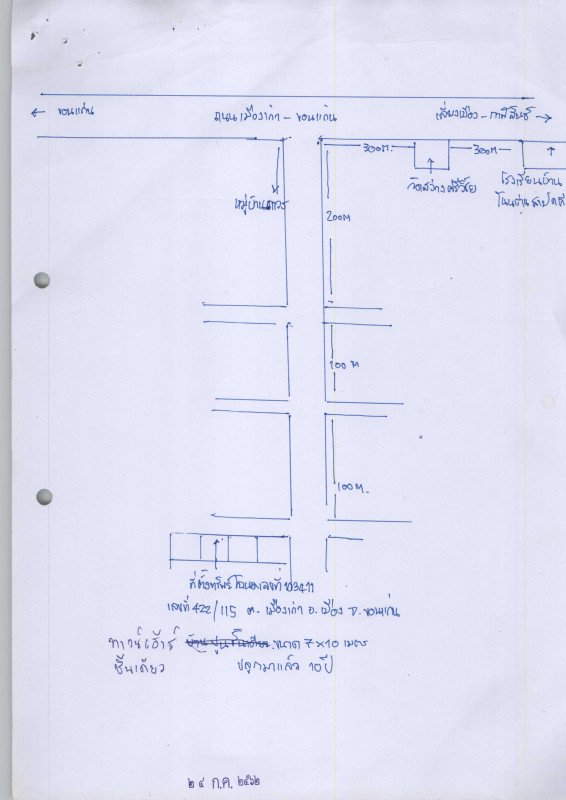 ← ขอนแก่น ถนนเมืองเก่า - ขอนแก่น เลี่ยงเมือง - กาฬสินธุ์ →
300m. 300m
วัดสว่างศรีวิชัย
โรงเรียนบ้าน
หมู่บ้านถาวร
200m
200 m
100m.
ที่ตั้งทรัพย์ โฉนดเลขที่ 103411
เลขที่ 422/115 ต. เมืองเก่า อ. เมือง จ. ขอนแก่น
ทาวน์เฮ้าส์ ขนาด 7 x 10 เมตร
ชั้นเดียว ปลูกมาแล้ว 10 ปี
๒๔ ก.ค. ๒๕๖๒